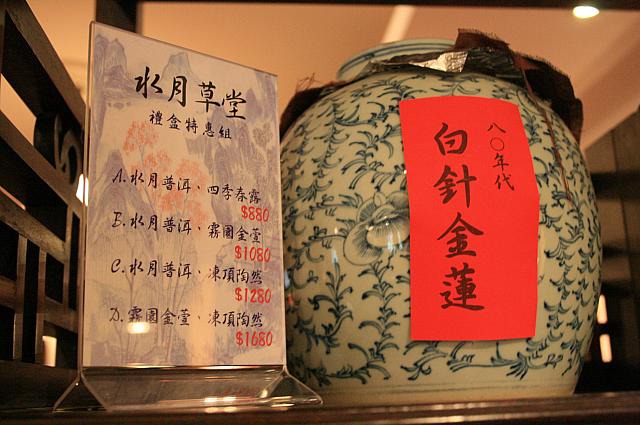 水月草堂
禮盒特惠組
A.水月普洱、四季春露
$880
B.水月普洱、霧園金萱
$1080
C.水月普洱、凍頂陶然
$1280
D.霧園金萱、凍頂陶然
$1680
八〇年代
白針金蓮